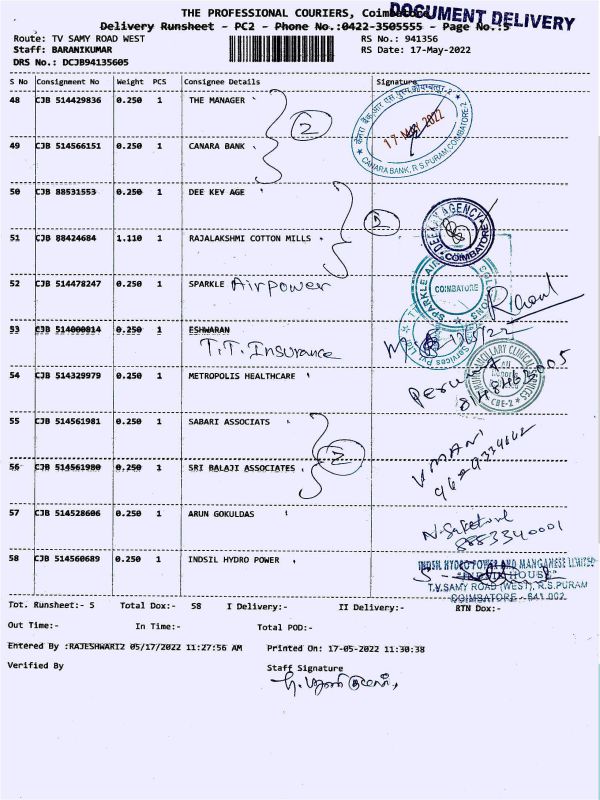 THE PROFESSIONAL COURIERS, Coimbatore
DOCUMENT DELIVERY
Delivery Runsheet - PC2 - Phone No.:0422-3505555 - Page No.:5
Route: TV SAMY ROAD WEST RS No.: 941356
Staff: BARANIKUMAR RS Date: 17-May-2022
DRS No.: DCJB94135605
S No Consignment No Weight PCS Consignee Details Signature
48 CJB 514429836 0.250 1 THE MANAGER
2
17 MAY 2022
CANARA BANK, R S PURAM, COIMBATORE-2
49 CJB 514566151 0.250 1 CANARA BANK
50 CJB 88531553 0.250 1 DEE KEY AGE
2
DEE KEY AGENCY
COIMBATORE
51 CJB 88424684 1.110 1 RAJALAKSHMI COTTON MILLS
52 CJB 514478247 0.250 1 SPARKLE Airpower
COIMBATORE
53 CJB 514000814 0.250 1 ESHWARAN
T.T. Insurance
54 CJB 514329979 0.250 1 METROPOLIS HEALTHCARE
CBE-2
55 CJB 514561981 0.250 1 SABARI ASSOCIATS
2
V MANI
56 CJB 514561980 0.250 1 SRI BALAJI ASSOCIATES
57 CJB 514528606 0.250 1 ARUN GOKULDAS
8883340001
58 CJB 514560689 0.250 1 INDSIL HYDRO POWER
INDSIL HYDRO POWER AND MANGANESE LIMITED
"INDSIL HOUSE"
T.V.SAMY ROAD (WEST), R.S.PURAM
COIMBATORE - 641 002
Tot. Runsheet:- 5 Total Dox:- 58 I Delivery:- II Delivery:- RTN Dox:-
Out Time:- In Time:- Total POD:-
Entered By :RAJESHWARI2 05/17/2022 11:27:56 AM Printed On: 17-05-2022 11:30:38
Verified By Staff Signature